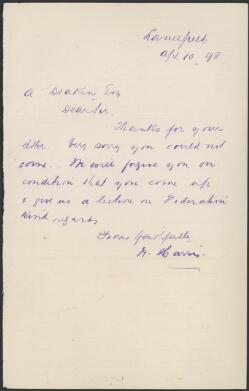 Lancefield
Apl 10. 98
A Deakin Esq
Dear Sir.
Thanks for your
letter Very sorry you could not
come. We will forgive you on
condition that you come up
& give us a lecture on Federation
Kind regards
Yours faithfully
Harris.